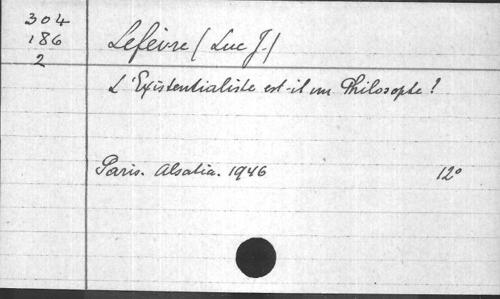 304
186
2
Lefèvre (Luc J.)
L'Existentialiste est-il un Philosophe ?
Paris. Alsatia. 1946 12°